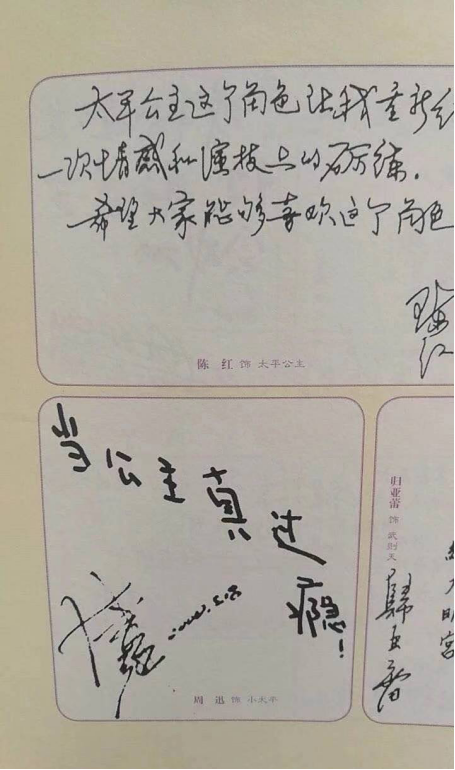 太平公主这个角色让我重新经
一次情感和演技上的磨练.
希望大家能够喜欢这个角色
陈
红
陈 红 饰 太平公主
当公主真过瘾!
周 迅 饰 小太平
归亚蕾 饰 武则天
归亚蕾
大明宫